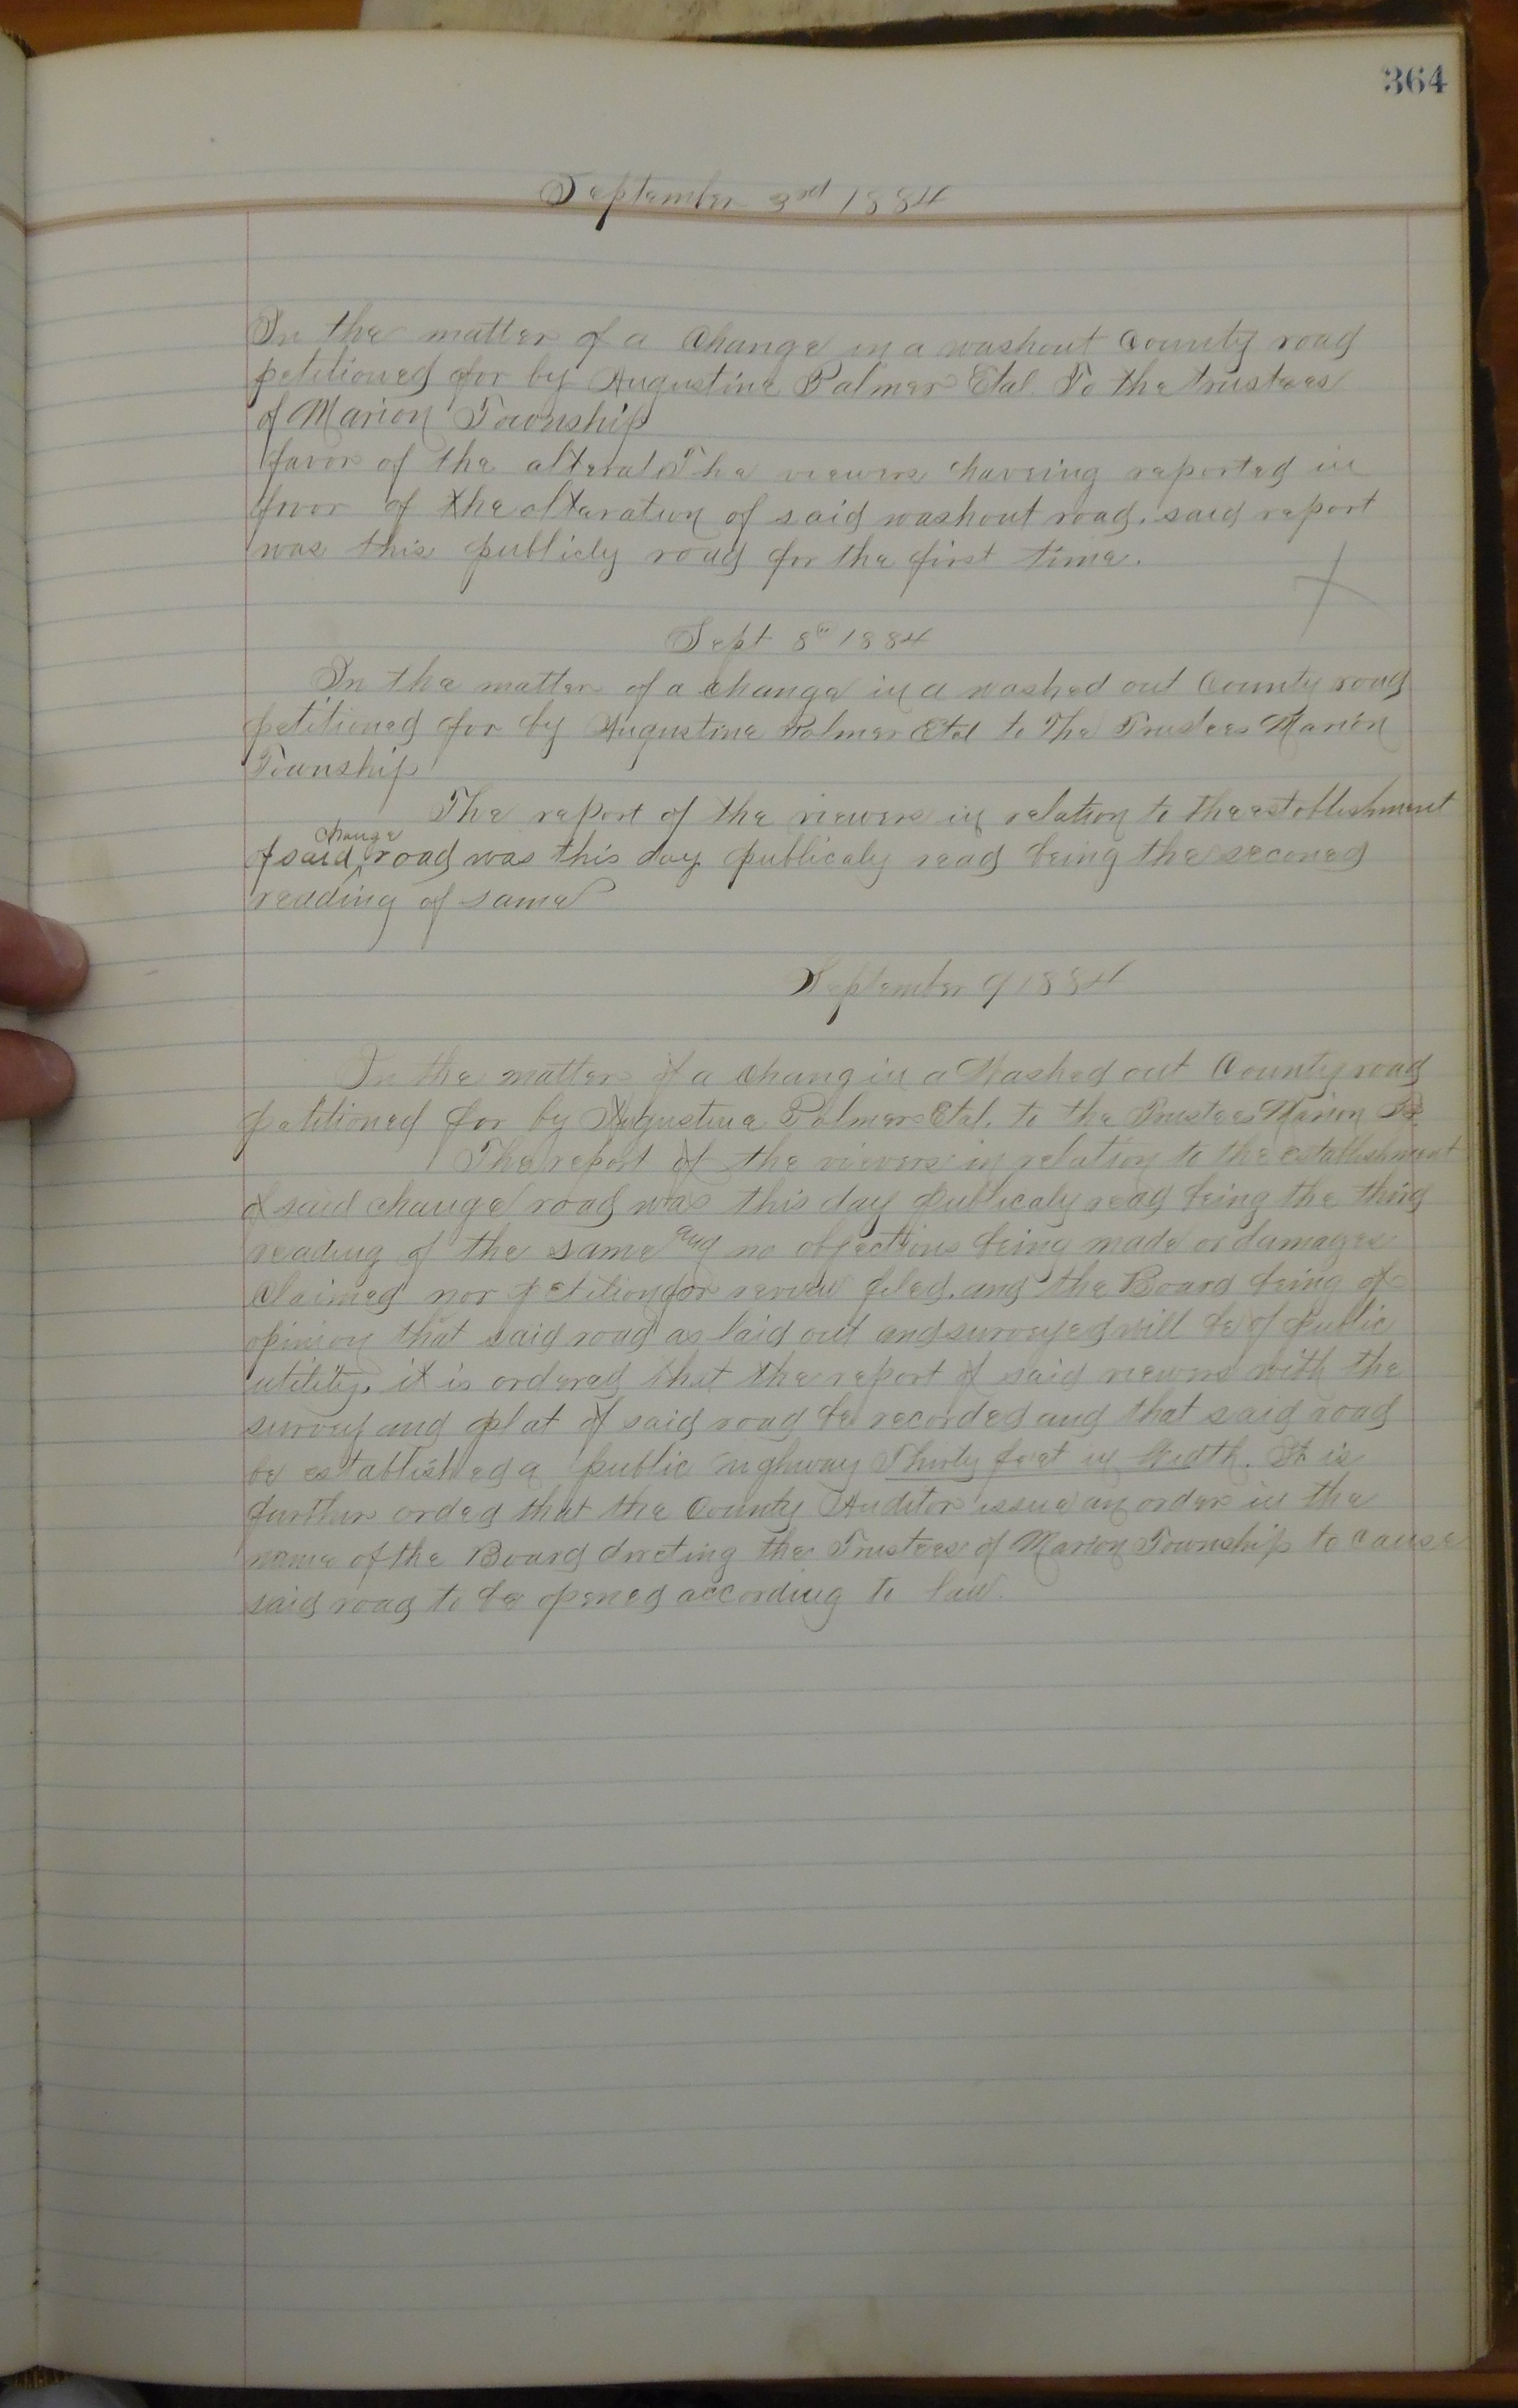 364
September 3rd 1884
In the matter of a Change in a washout County road
petitioned for by Augustine Palmer Etal. To the trustees
of Marion Township
favor of the alterat The viewers haveing reported in
favor of the alteration of said washout road. said report
was this publicly read for the first time.
Sept 8th 1884
In the matter of a change in a washed out County road
petitioned for by Augustine Palmer Etal to The Trustees Marion
Township
The report of the viewers in relation to the establishment
change
of said road was this day publicaly read being the seconed
reading of same
September 9 1884
In the matter of a chang in a Washed out County road
petitioned for by Augustine Palmer Etal. to the Trustees Marion Tp.
The report of the viewers in relation to the establishment
of said change road was this day publicaly read being the third
reading of the same and no objections being made or damages
Claimed nor petition for review filed. and the Board being of
opinion that said road as laid out and surveyed will be of public
utility, it is ordered that the report of said viewers with the
survey and plat of said road be recorded and that said road
be established a public highway Thirty feet in Width. It is
further orded that the County Auditor issue an order in the
name of the Board dircting the Trustees of Marion Township to cause
said road to be opened according to law.